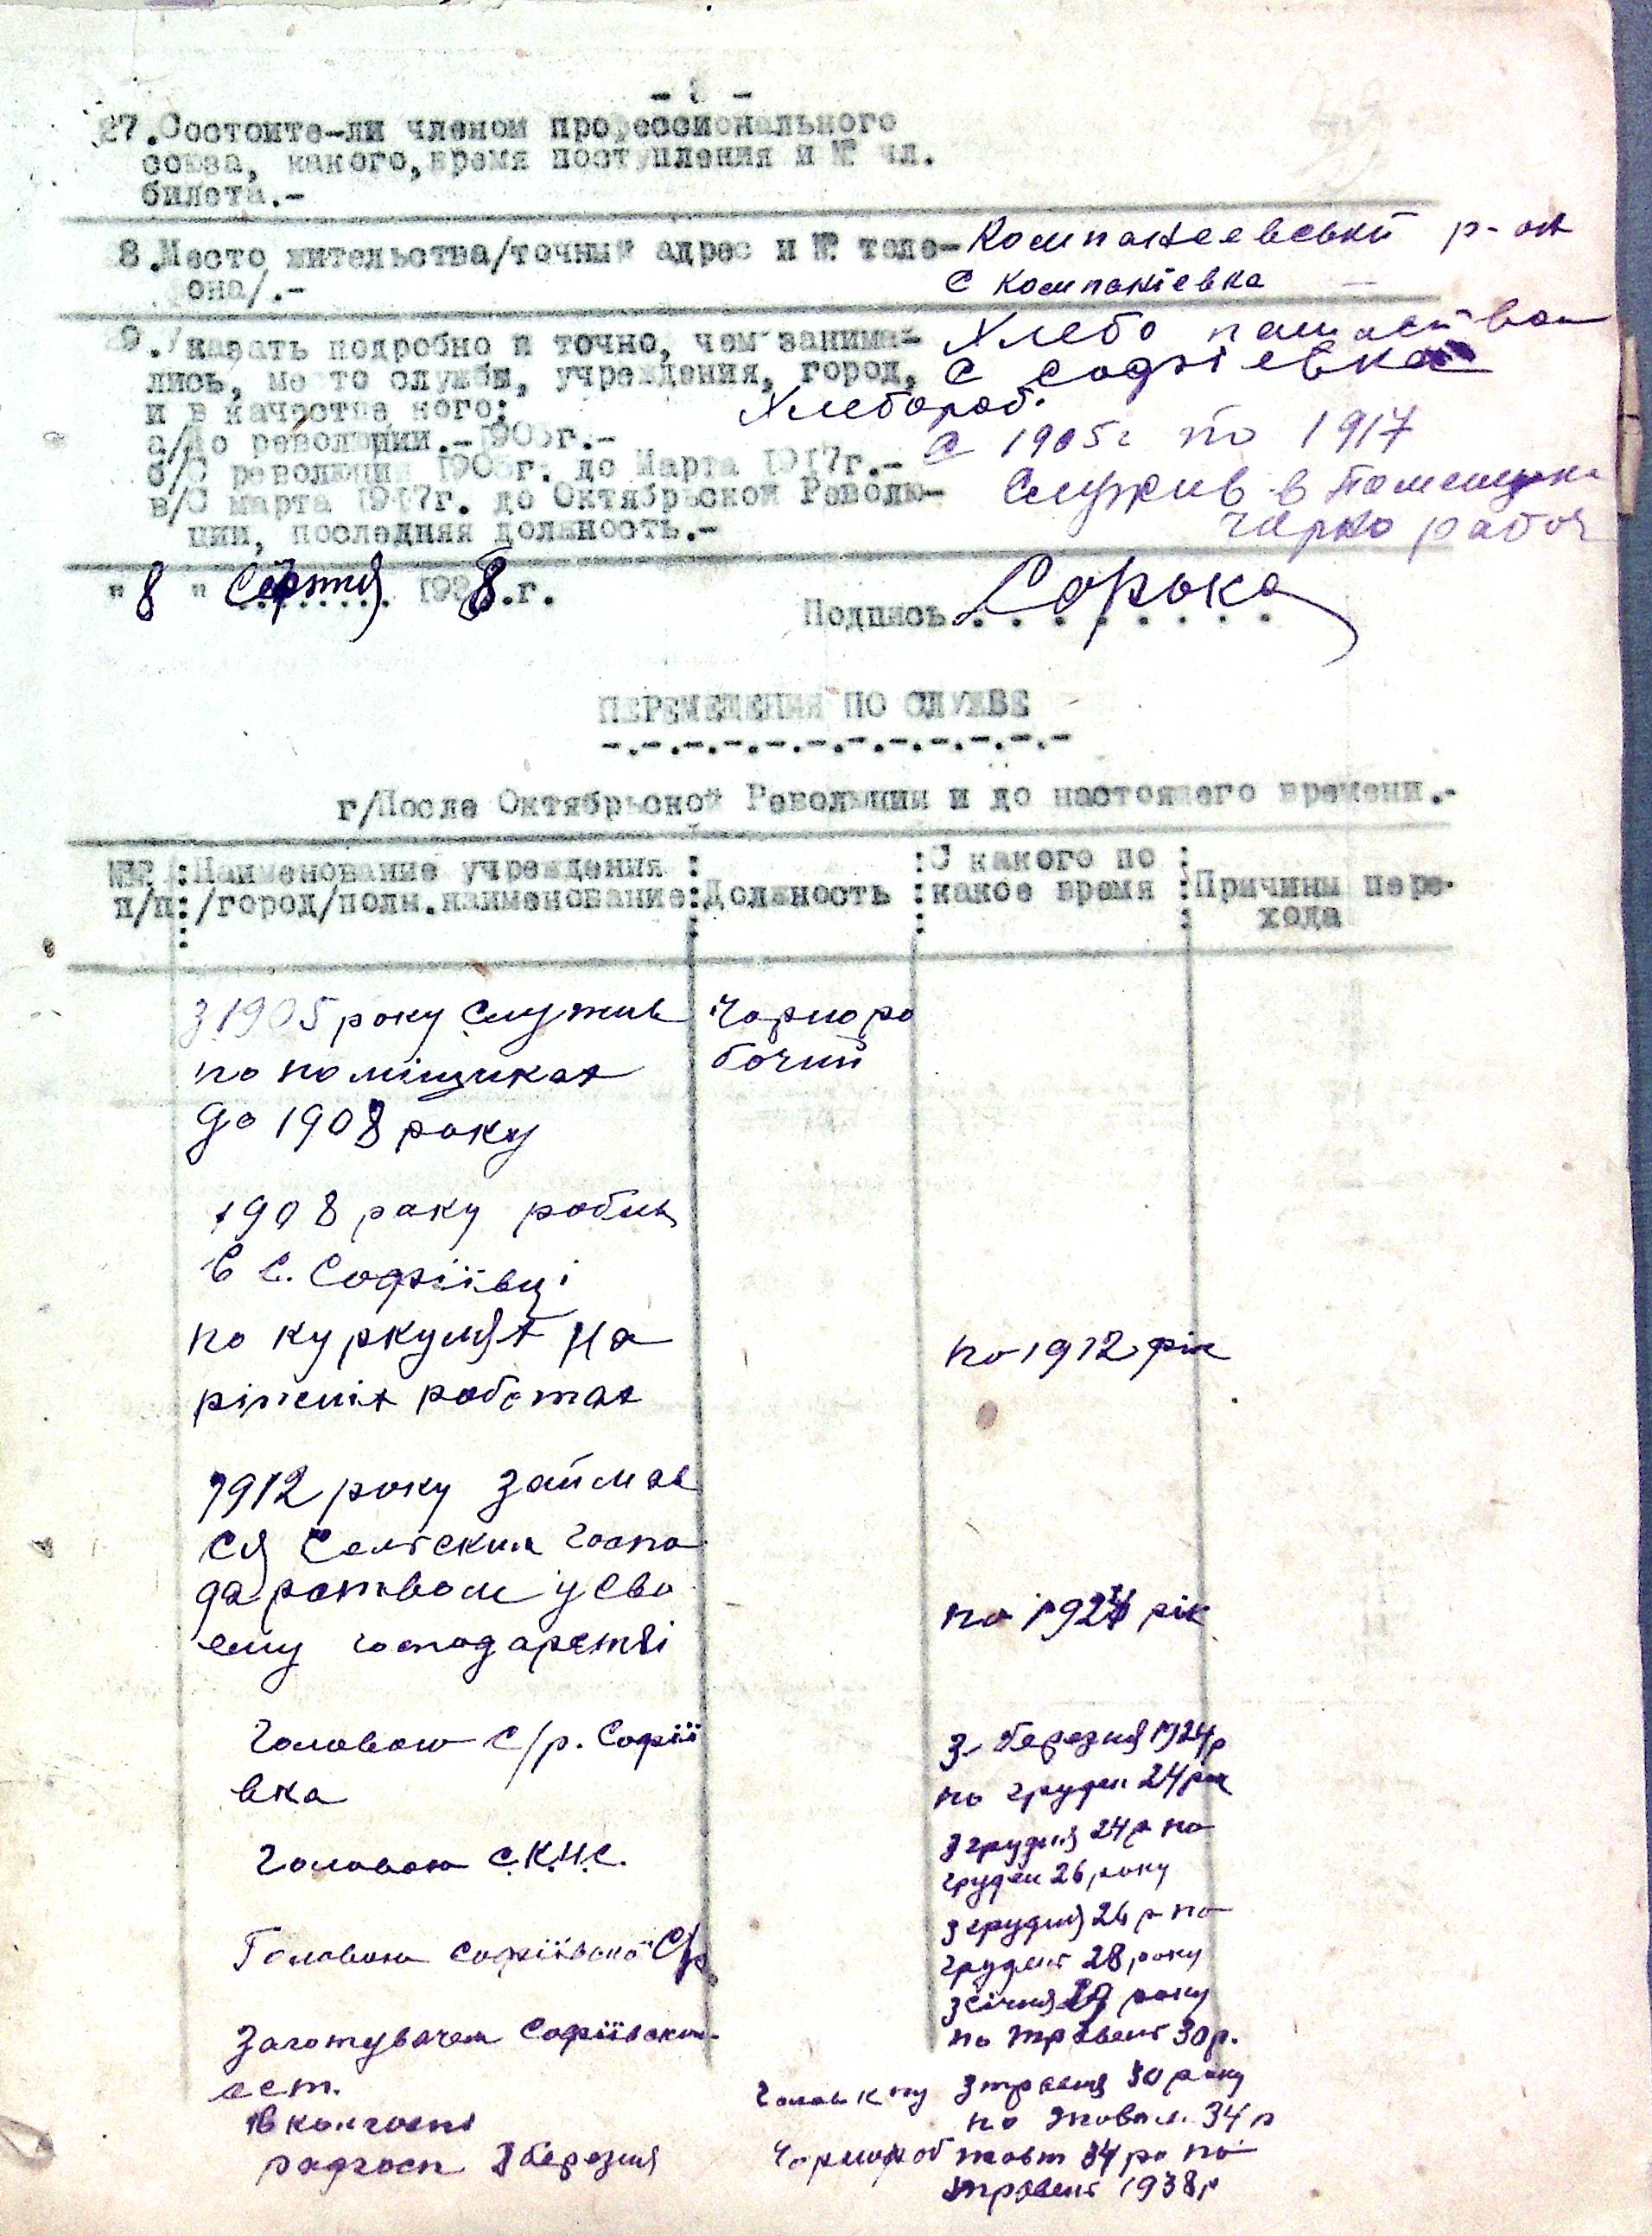 27.Состоите-ли членом профессионального
союза, какого, время поступления и № чл.
билета.-
8.Место жительства/точный адрес и № теле-
она/.-
Компанеевський р-он
С Компаніевка
9. Указать подробно и точно, чем занима-
лись, место службы, учреждения, город,
и в качестве кого:
а/До революции.-1905г.-
б/С революции 1905г. до Марта 1917г.-
в/С марта 1917г. до Октябрьской Револю-
ции, последняя должность.-
Хлебо
С Софіевка
Хлебороб.
С 1905г по 1917
Служив в Помещика
Чорно рабоч
"8" Серпня 1938.г.
Подпись Сорока
ПЕРЕМЕЩЕНИЯ ПО СЛУЖБЕ
г/После Октябрьской Революции и до настоящего времени.-
№№ :Наименование учреждения : :С какого по :
п/п:/город/полн.наименование:Должность :какое время :Причины пере-
хода
З 1905 року служив Чорноро
по поміщиках бочий
до 1908 року
1908 року робив
в с. Софіївці
по куркулях на по 1912 рік
ріжних роботах
1912 року займав
ся Сельским госпо
дарством у сво по 1924 рік
ему господарстві
Головою с/р. Софії З березня 1924р
вка по груден 24 рік
Головою С.К.Н.С. З грудня 24 р по
груден 26 року
Головою Софіївської С/р З грудня 26 р по
грудень 28 року
З січня 29 року
Заготувачем Софіївском по травень 30р.
сст. З травня 30 року
в колгоспі по 34 р
радгосп 8 березня Чорнороб 34 ро по
травень 1938р